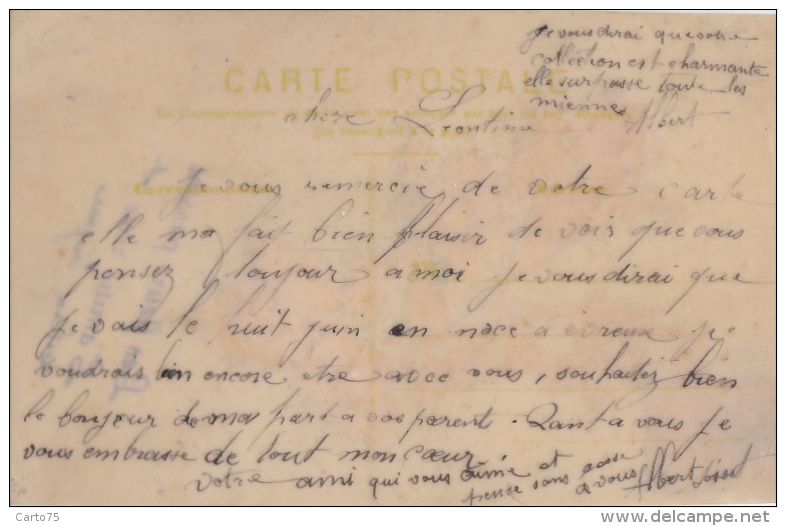 je vous dirai que votre
collection est charmante
elle surpasse toute les
miennes
Albert
CARTE POSTALE
chere Leontine
Je vous remercie de votre carte
elle ma fait bien plaisir de voir que vous
pensez toujour a moi je vous dirai que
je vais le huit juin en noce a evreux je
voudrais bin encore etre avec vous, souhaitez bien
le bonjour de ma part a vos parent. Quant a vous je
vous embrasse de tout mon cœur
votre ami qui vous aime et
pense sans cesse
a vous Albert
Carto75
www.delcampe.net